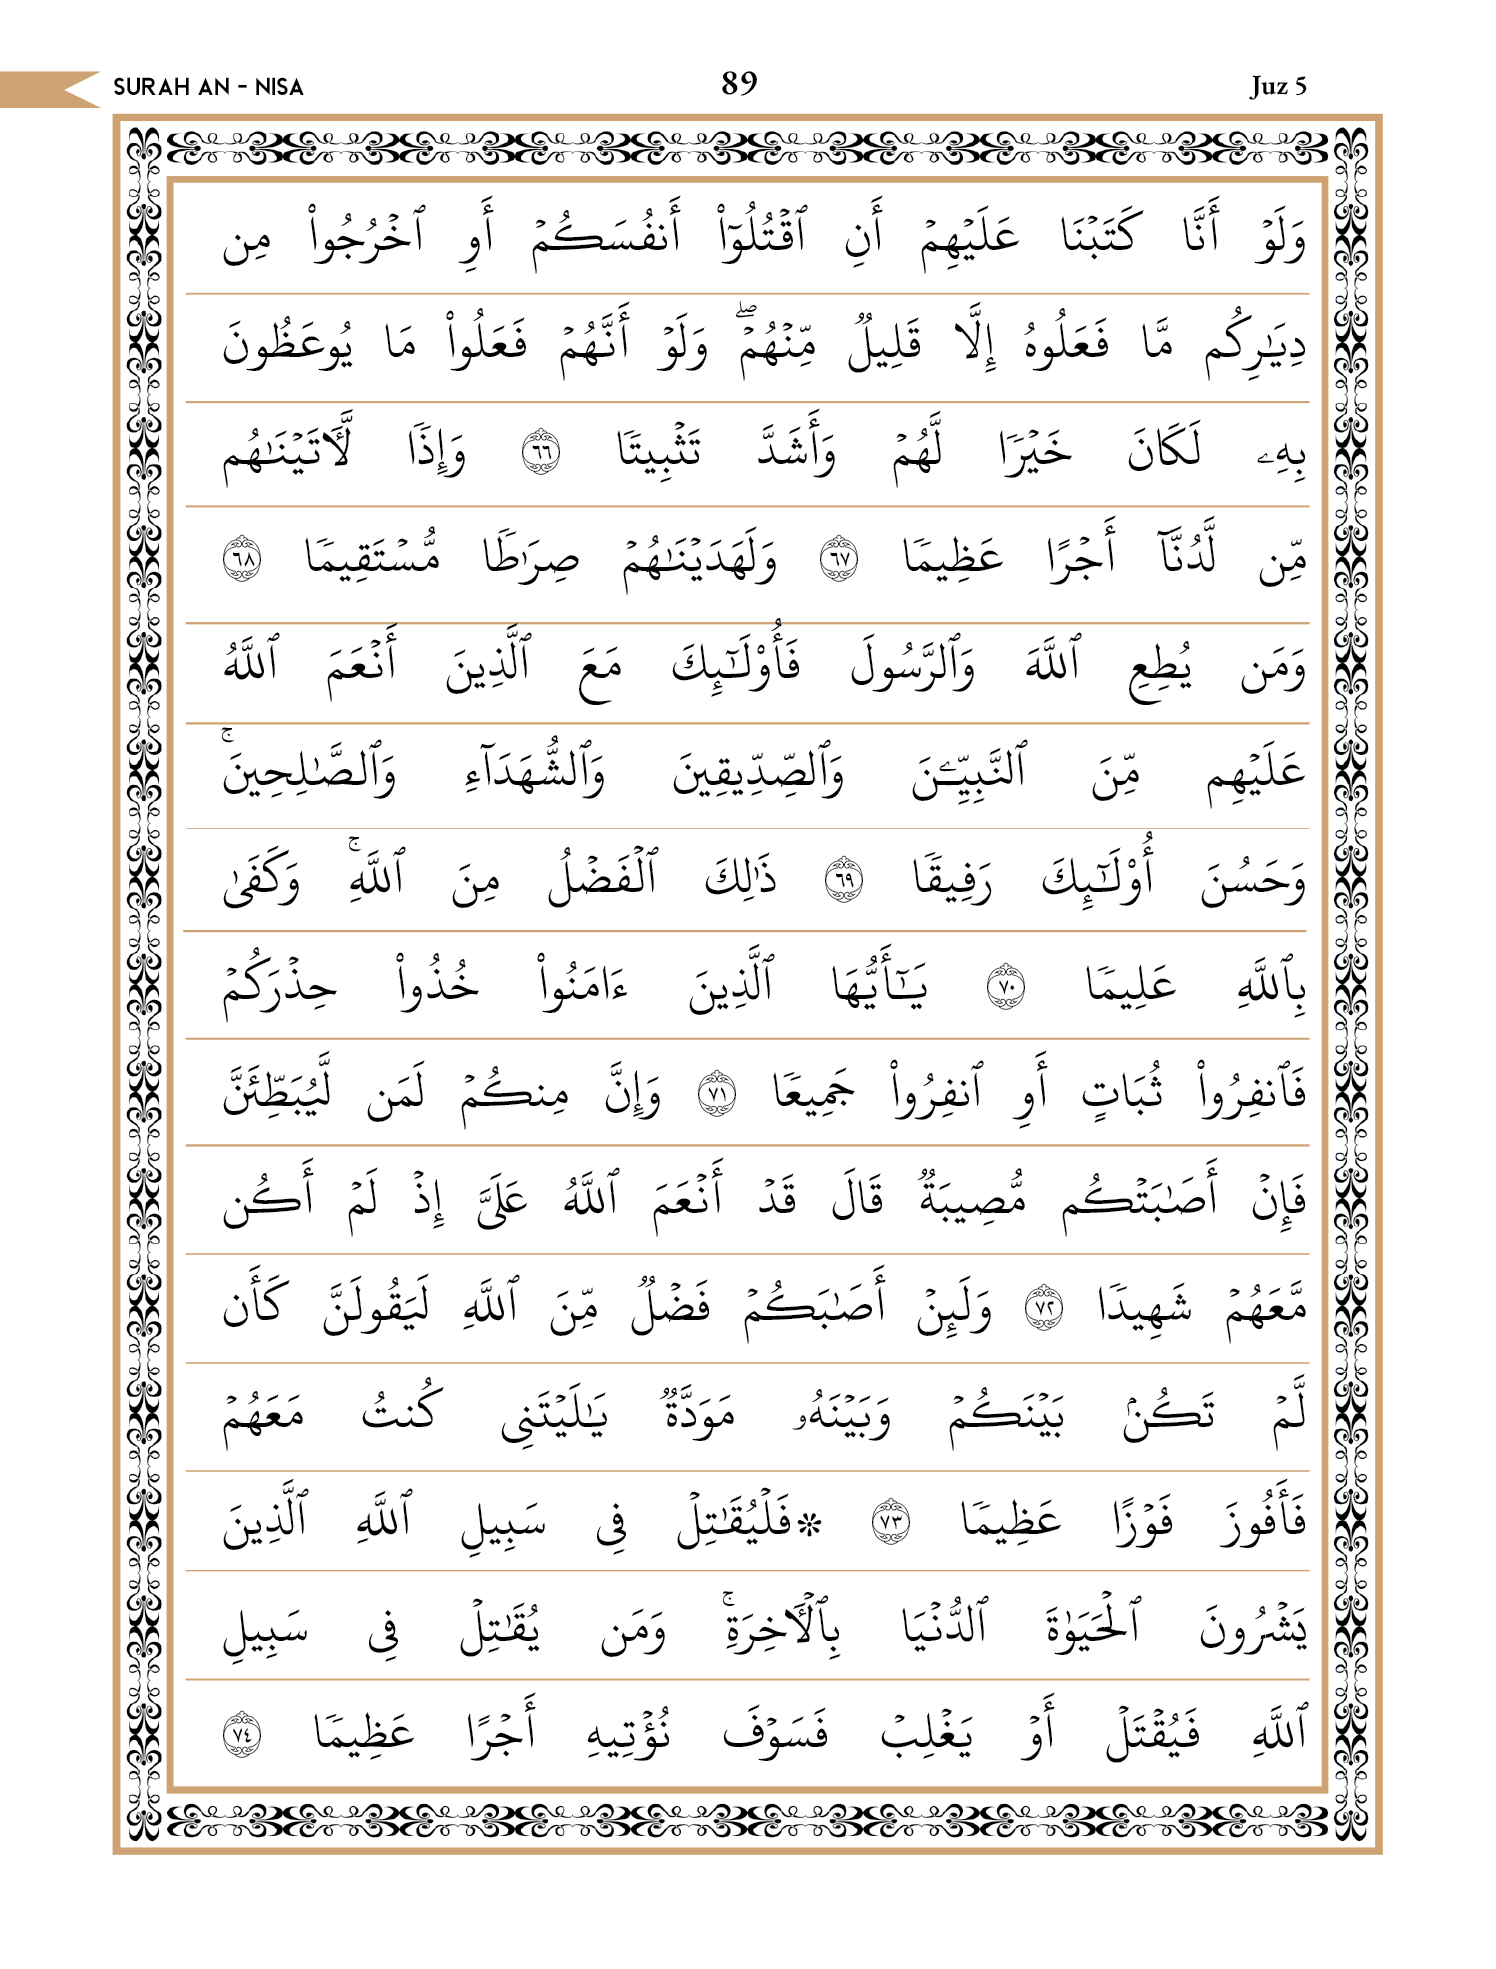 SURAH AN - NISA 89 Juz 5
وَلَوۡ أَنَّا كَتَبۡنَا عَلَيۡهِمۡ أَنِ ٱقۡتُلُوٓاْ أَنفُسَكُمۡ أَوِ ٱخۡرُجُواْ مِن
دِيَٰرِكُم مَّا فَعَلُوهُ إِلَّا قَلِيلٞ مِّنۡهُمۡۖ وَلَوۡ أَنَّهُمۡ فَعَلُواْ مَا يُوعَظُونَ
بِهِۦ لَكَانَ خَيۡرٗا لَّهُمۡ وَأَشَدَّ تَثۡبِيتٗا ٦٦ وَإِذٗا لَّأٓتَيۡنَٰهُم
مِّن لَّدُنَّآ أَجۡرًا عَظِيمٗا ٦٧ وَلَهَدَيۡنَٰهُمۡ صِرَٰطٗا مُّسۡتَقِيمٗا ٦٨
وَمَن يُطِعِ ٱللَّهَ وَٱلرَّسُولَ فَأُوْلَٰٓئِكَ مَعَ ٱلَّذِينَ أَنۡعَمَ ٱللَّهُ
عَلَيۡهِم مِّنَ ٱلنَّبِيِّـۧنَ وَٱلصِّدِّيقِينَ وَٱلشُّهَدَآءِ وَٱلصَّٰلِحِينَۚ
وَحَسُنَ أُوْلَٰٓئِكَ رَفِيقٗا ٦٩ ذَٰلِكَ ٱلۡفَضۡلُ مِنَ ٱللَّهِۚ وَكَفَىٰ
بِٱللَّهِ عَلِيمٗا ٧٠ يَٰٓأَيُّهَا ٱلَّذِينَ ءَامَنُواْ خُذُواْ حِذۡرَكُمۡ
فَٱنفِرُواْ ثُبَاتٍ أَوِ ٱنفِرُواْ جَمِيعٗا ٧١ وَإِنَّ مِنكُمۡ لَمَن لَّيُبَطِّئَنَّ
فَإِنۡ أَصَٰبَتۡكُم مُّصِيبَةٞ قَالَ قَدۡ أَنۡعَمَ ٱللَّهُ عَلَيَّ إِذۡ لَمۡ أَكُن
مَّعَهُمۡ شَهِيدٗا ٧٢ وَلَئِنۡ أَصَٰبَكُمۡ فَضۡلٞ مِّنَ ٱللَّهِ لَيَقُولَنَّ كَأَن
لَّمۡ تَكُنۢ بَيۡنَكُمۡ وَبَيۡنَهُۥ مَوَدَّةٞ يَٰلَيۡتَنِي كُنتُ مَعَهُمۡ
فَأَفُوزَ فَوۡزًا عَظِيمٗا ٧٣ ۞فَلۡيُقَٰتِلۡ فِي سَبِيلِ ٱللَّهِ ٱلَّذِينَ
يَشۡرُونَ ٱلۡحَيَوٰةَ ٱلدُّنۡيَا بِٱلۡأٓخِرَةِۚ وَمَن يُقَٰتِلۡ فِي سَبِيلِ
ٱللَّهِ فَيُقۡتَلۡ أَوۡ يَغۡلِبۡ فَسَوۡفَ نُؤۡتِيهِ أَجۡرًا عَظِيمٗا ٧٤